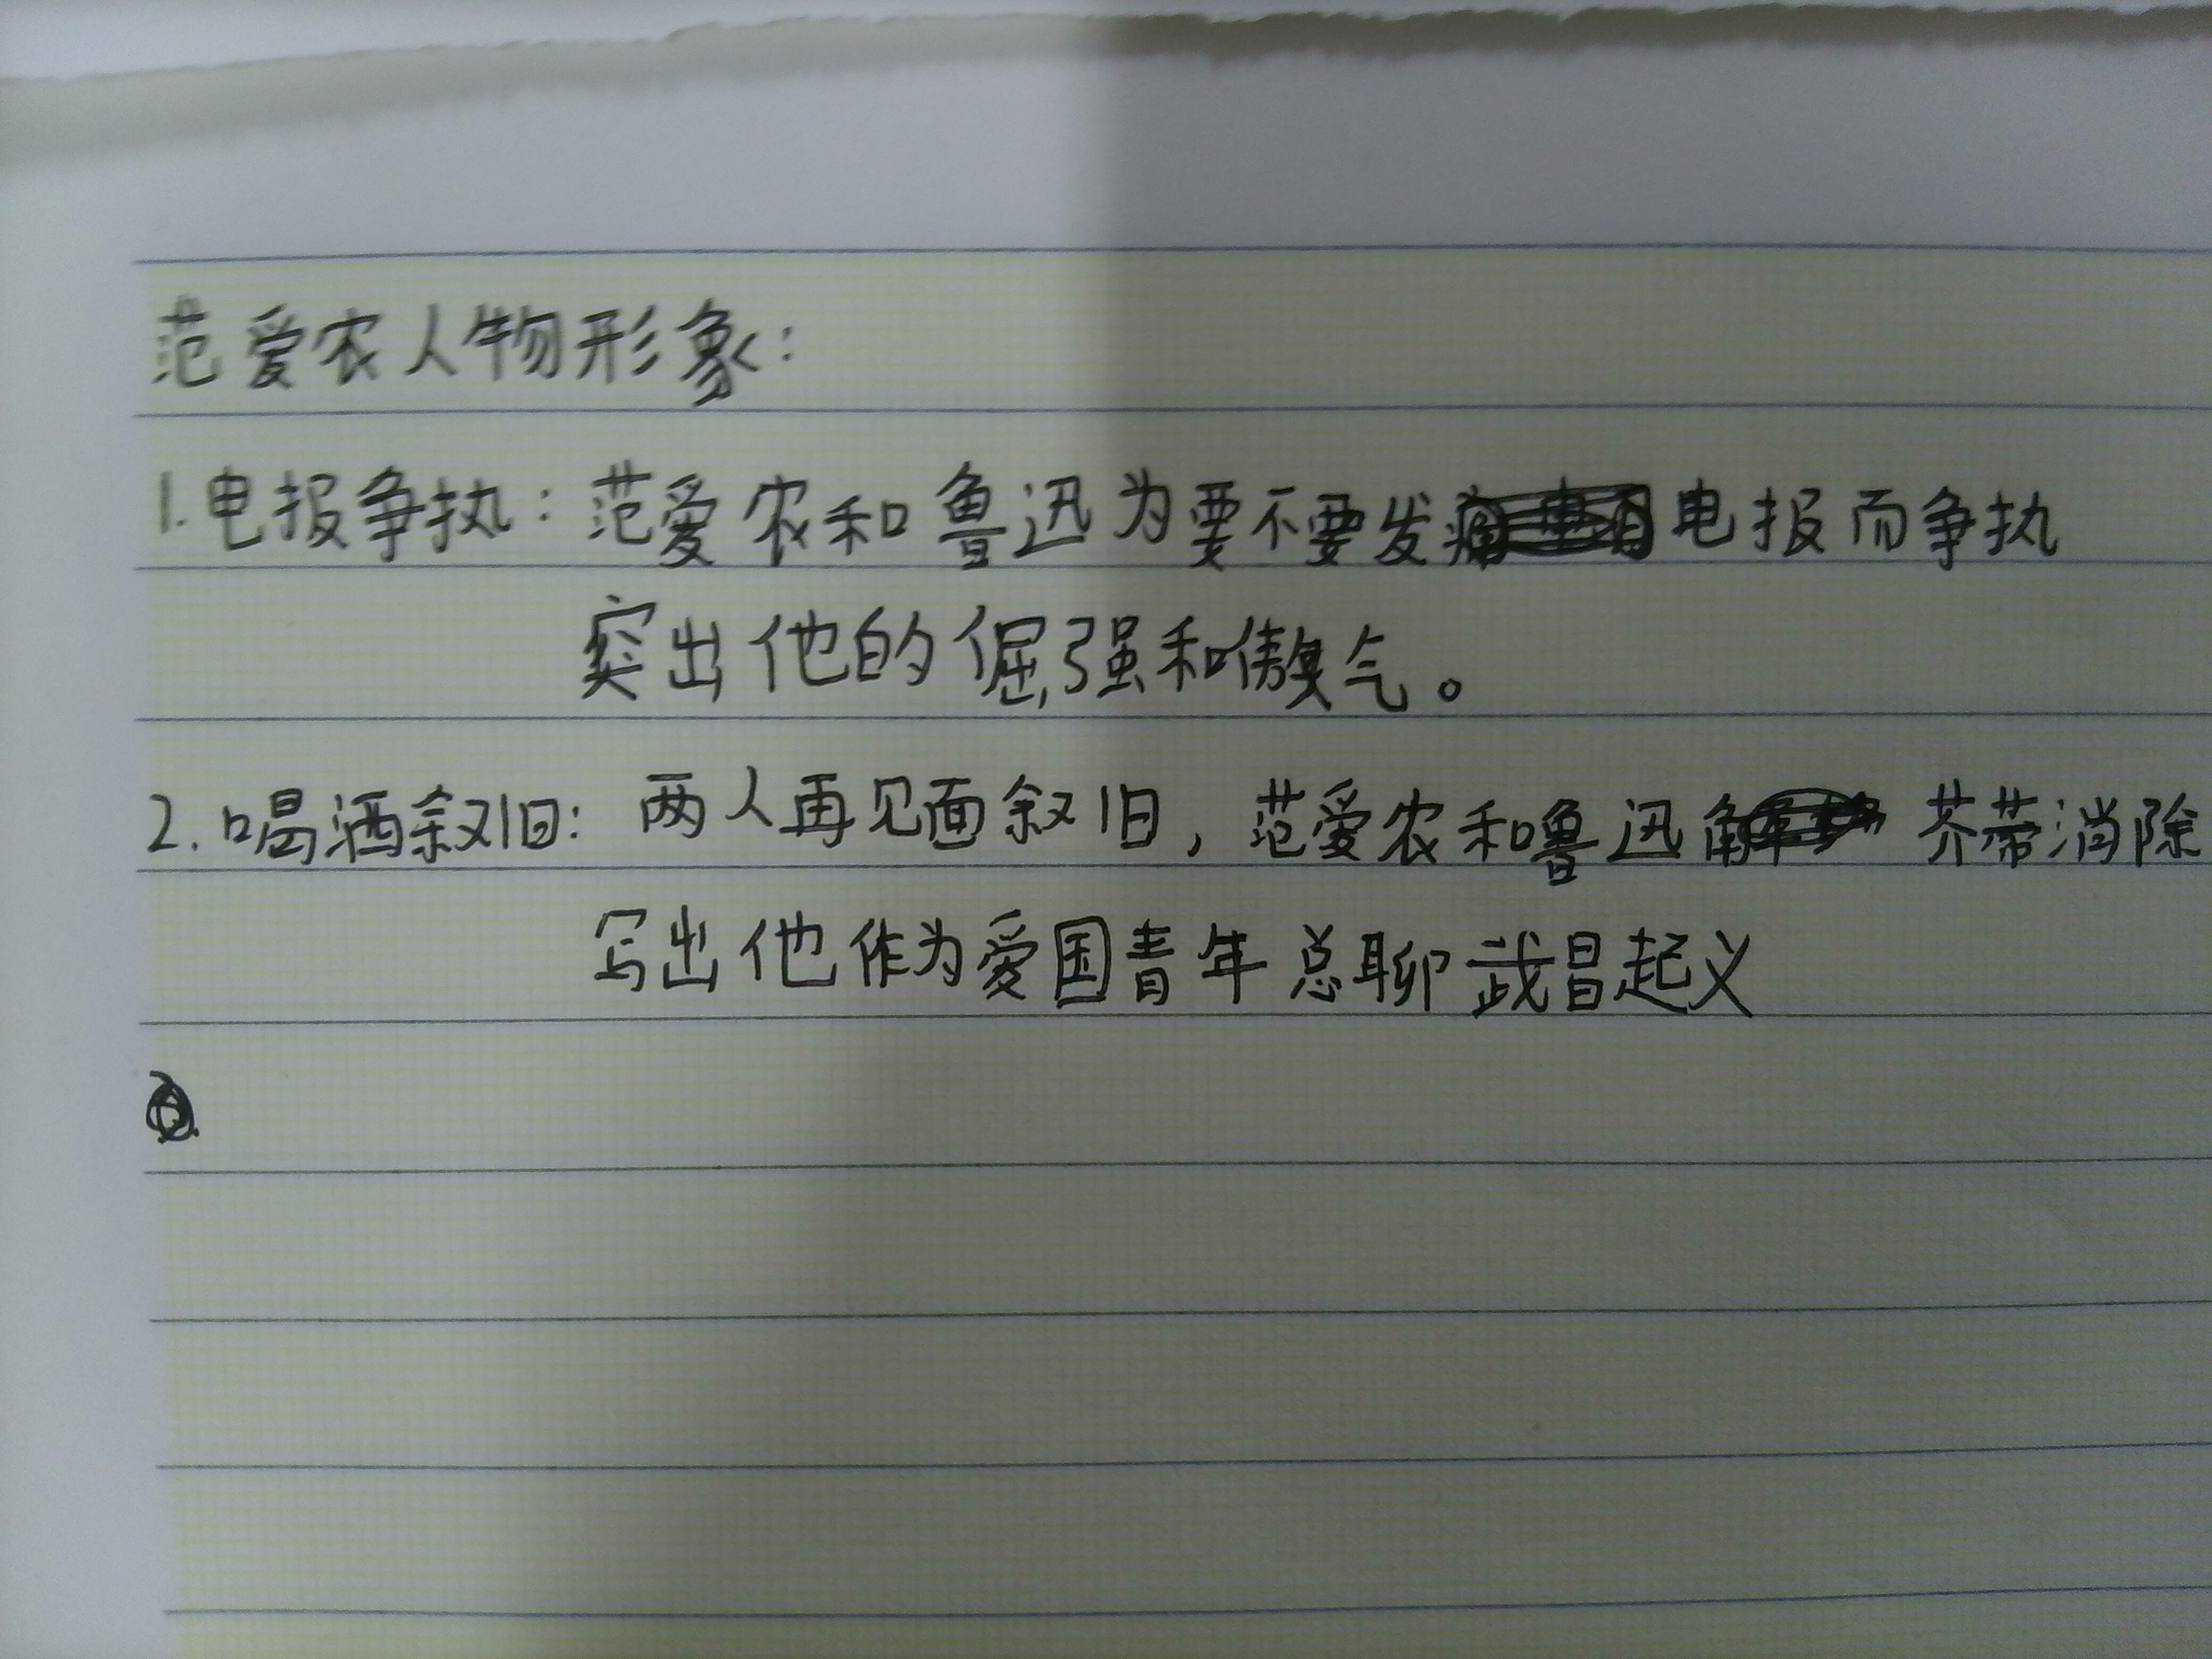 范爱农人物形象:
1.电报争执:范爱农和鲁迅为要不要发电报而争执
突出他的倔强和傲气。
2.喝酒叙旧:两人再见面叙旧,范爱农和鲁迅芥蒂消除
写出他作为爱国青年总聊武昌起义